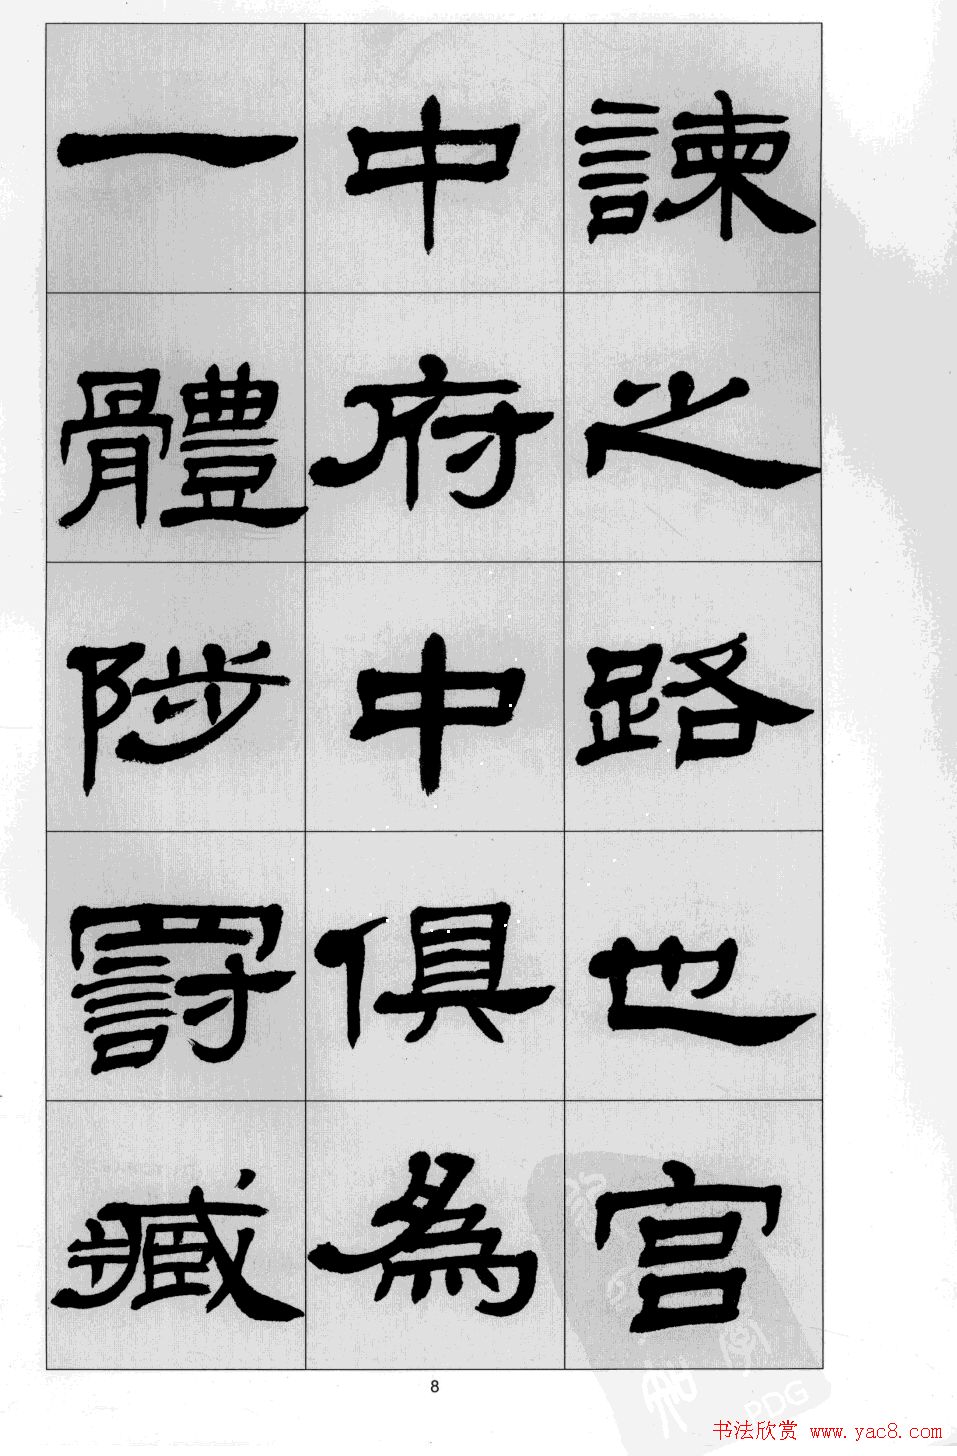 諫之路也宫
中府中俱為
一體陟罰臧
8
书法欣赏 www.yac8.com